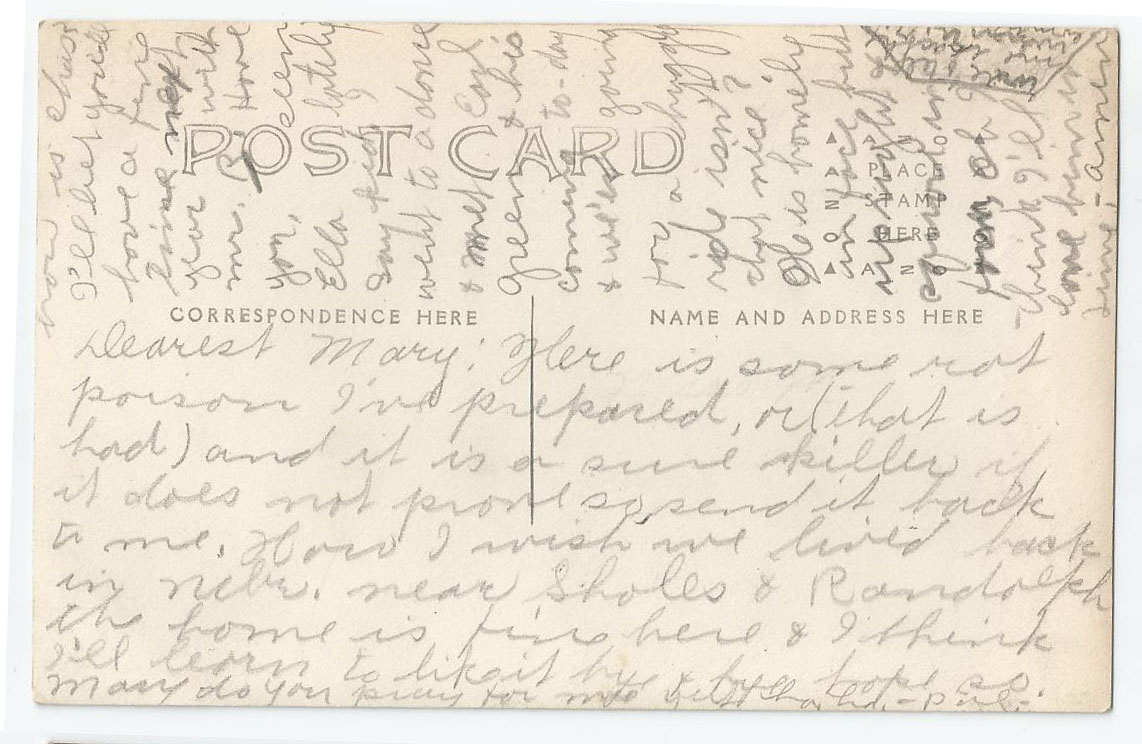 POST CARD
PLACE
STAMP
HERE
CORRESPONDENCE HERE
NAME AND ADDRESS HERE
Dearest Mary: Here is some rat
poison I've prepared, or (that is
had) and it is a sure killer if
it does not prove so, send it back
to me. How I wish we lived back
in Nebr. near Sholes & Randolph
the home is fine here & I think
I'll learn to like it by & by hope so.
Mary do you pray for me
how is
I'll bet you'll
have a fine
time next
year with
mr. B Have
you seen
Ella lately
Say kid I
went to a dance
& met Carl
Green & his
coming to-day
& we're going
for a buggy
ride isn't
that nice?
He is homely
in face but
alright
think I'll
love him in
time, - amen